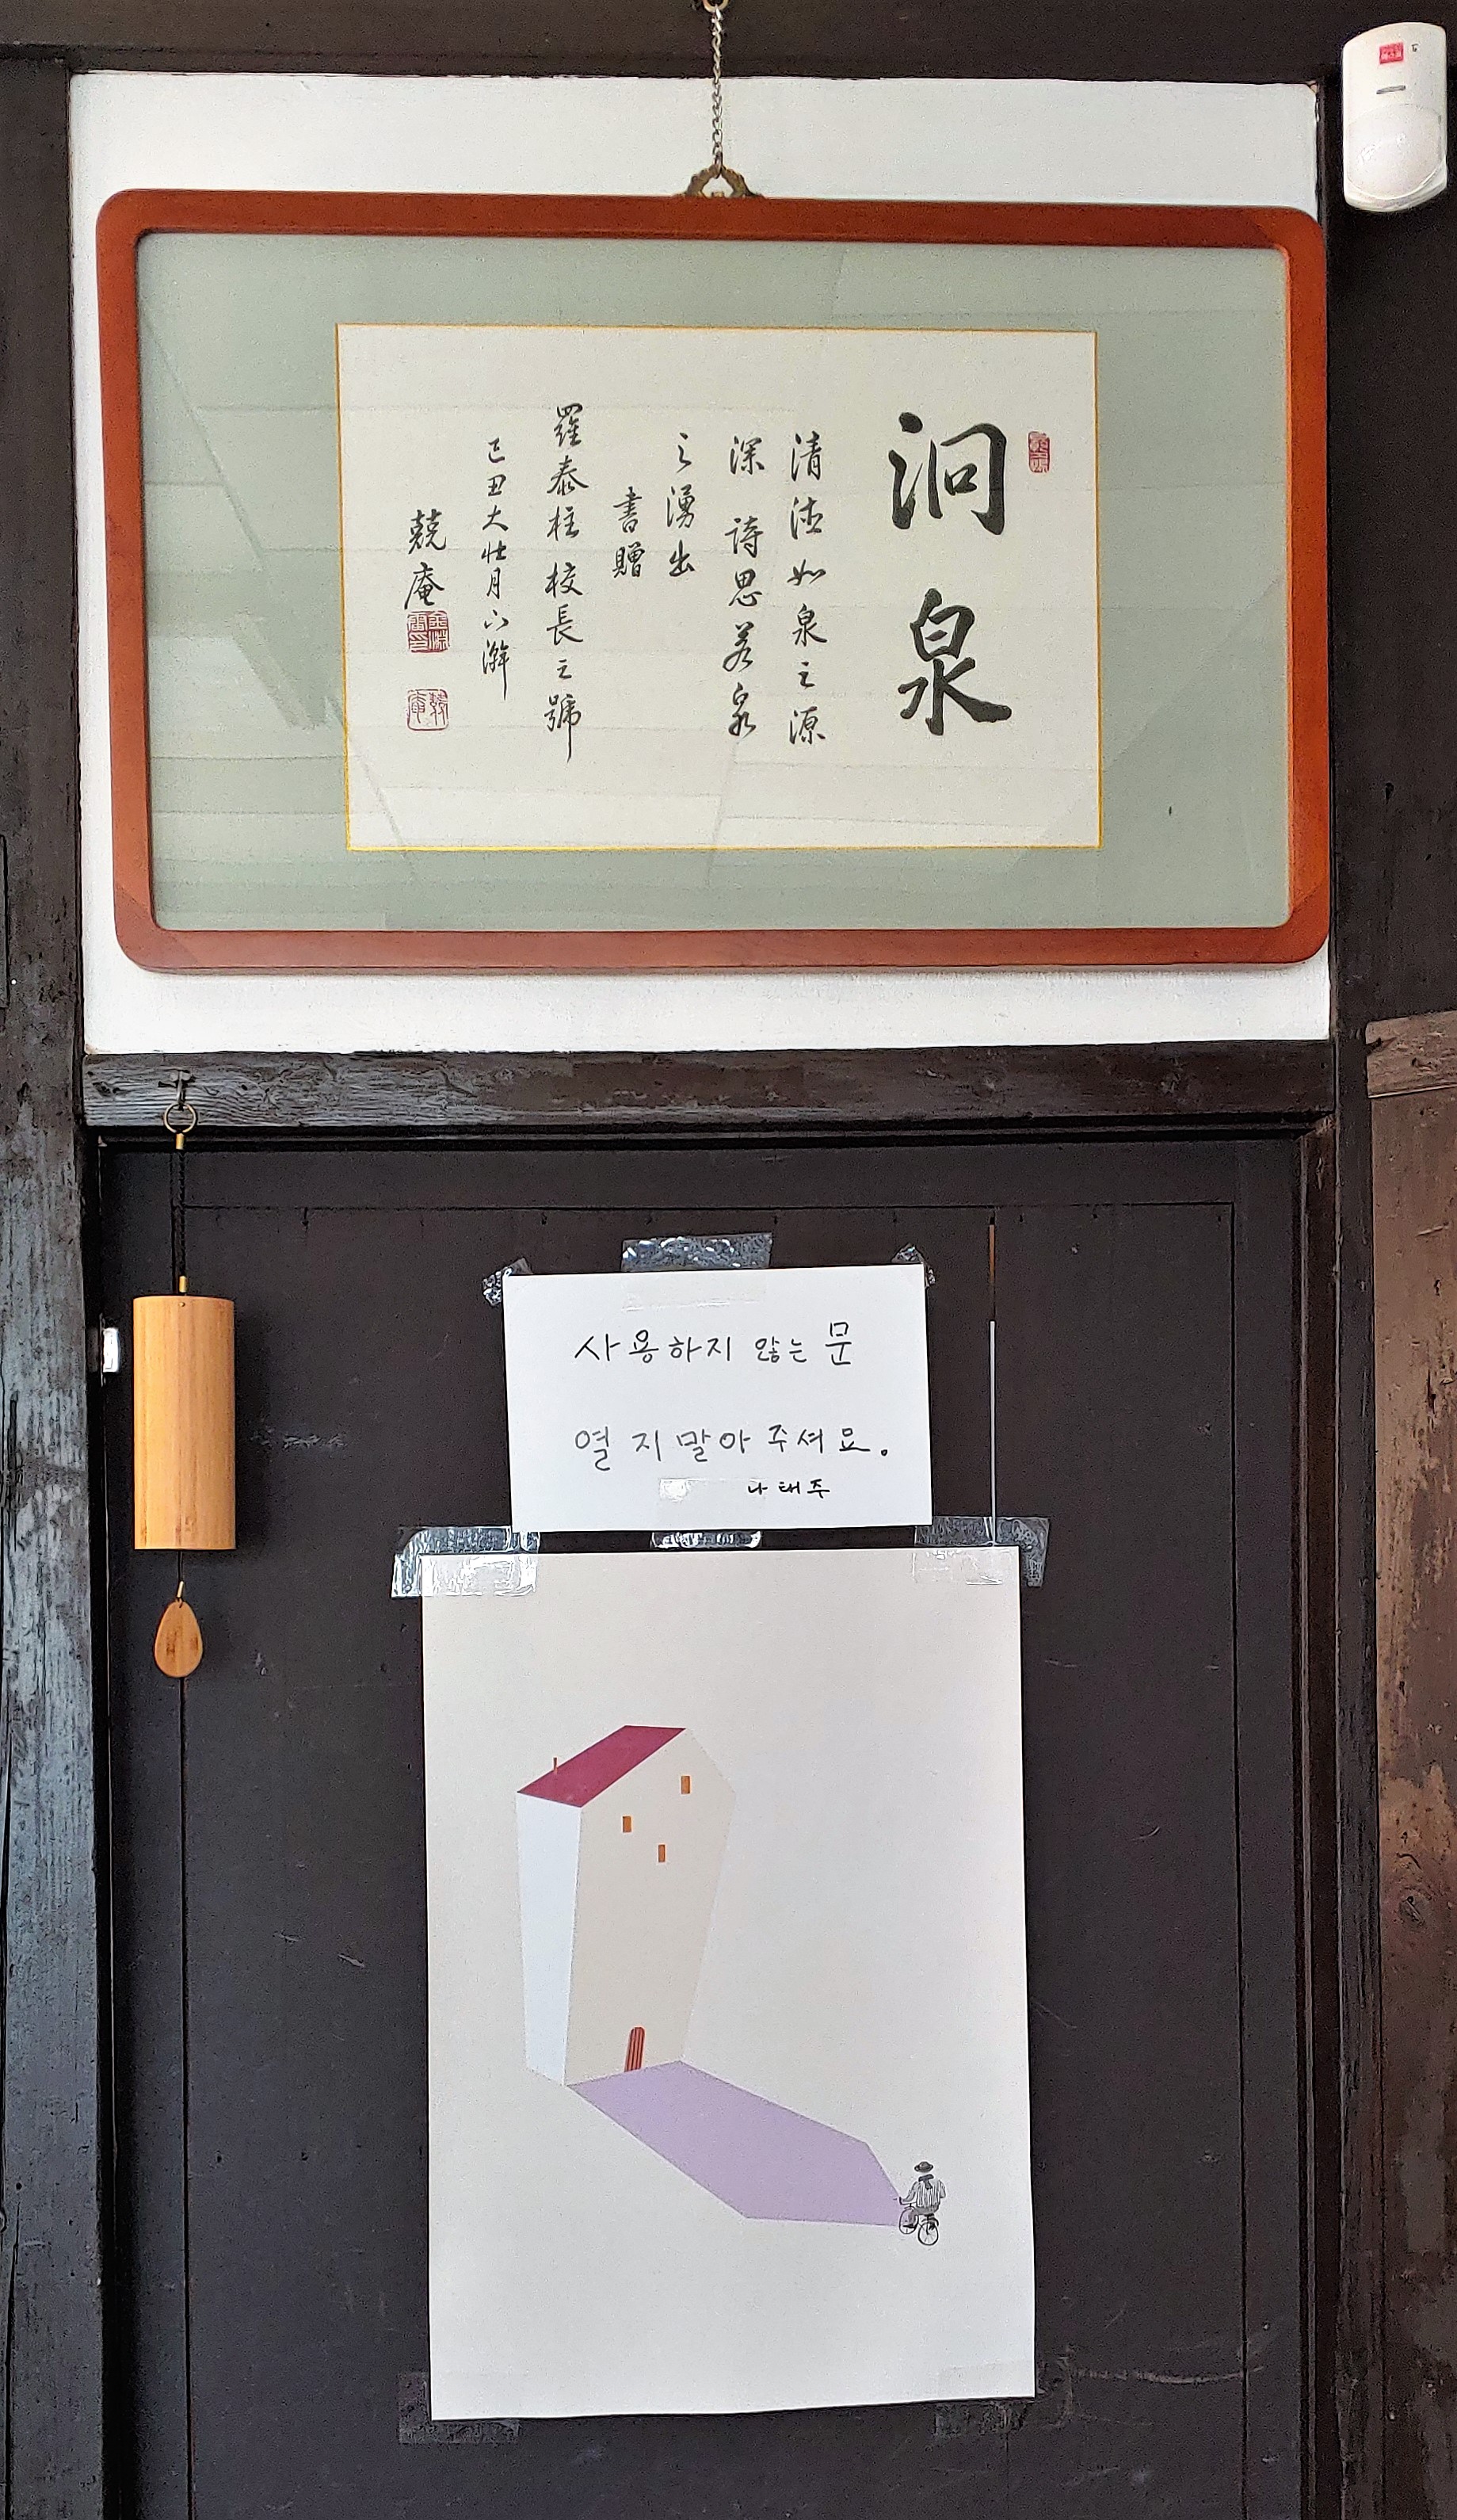 泂泉
清德如泉之源
深 詩思若泉
之湧出
書贈
羅泰柱校長之號
己丑大壯月下澣
兢庵
사용하지 않는 문
열지 말아 주셔요.
나태주